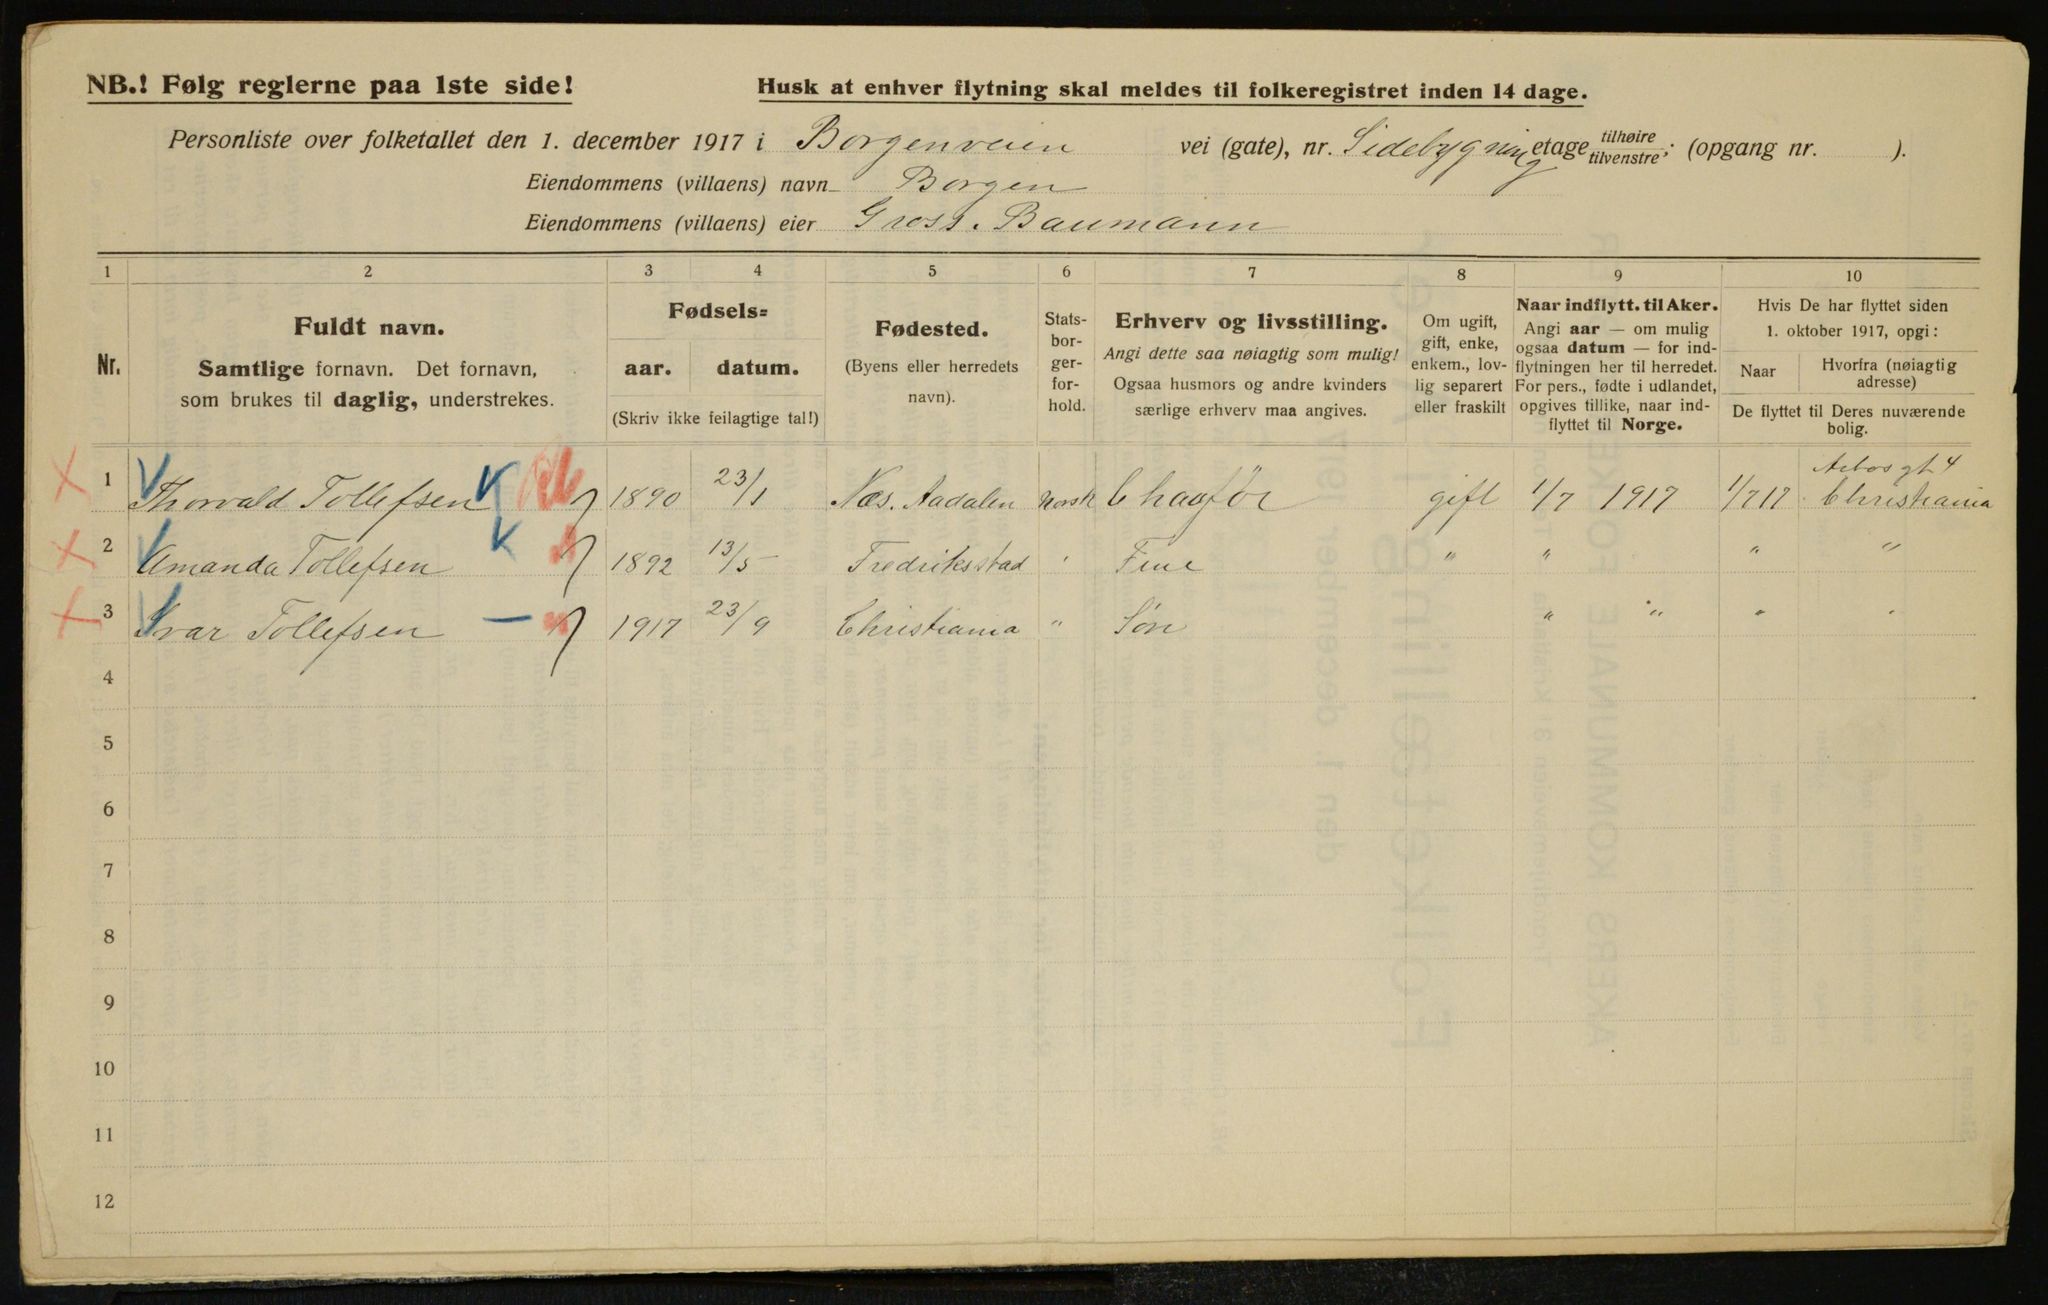 NB.! Følg reglerne paa 1ste side!
Husk at enhver flytning skal meldes til folkeregistret inden 14 dage.
Personliste over folketallet den 1. december 1917 i Borgenveien vei (gate), nr. Sidebygning etage tilhøire tilvenstre; (opgang nr. ).
Eiendommens (villaens) navn Borgen
Eiendommens (villaens) eier Gross. Baumann
1 2 3 4 5 6 7 8 9 10
Nr.
Fuldt navn.
Samtlige fornavn. Det fornavn,
som brukes til daglig, understrekes.
Fødsels=
aar. datum.
(Skriv ikke feilagtige tal!)
Fødested.
(Byens eller herredets
navn).
Stats-
bor-
ger-
for-
hold.
Erhverv og livsstilling.
Angi dette saa nøiagtig som mulig!
Ogsaa husmors og andre kvinders
særlige erhverv maa angives.
Om ugift,
gift, enke,
enkem., lov-
lig separert
eller fraskilt
Naar indflytt. til Aker.
Angi aar — om mulig
ogsaa datum — for ind-
flytningen her til herredet.
For pers., fødte i utlandet,
opgives tillike, naar ind-
flyttet til Norge.
Hvis De har flyttet siden
1. oktober 1917, opgi:
Naar
Hvorfra (nøiagtig
adresse)
De flyttet til Deres nuværende
bolig.
1 Thorvald Tollefsen 1890 23/1 Næs. Aadalen norsk Chaufør gift 1/7 1917 1/7 17 Christiania
2 Amanda Tollefsen 1892 13/5 Fredriksstad " " " " "
3 Ivar Tollefsen 1917 23/9 Christiania " Søn " " " "
4
5
6
7
8
9
10
11
12